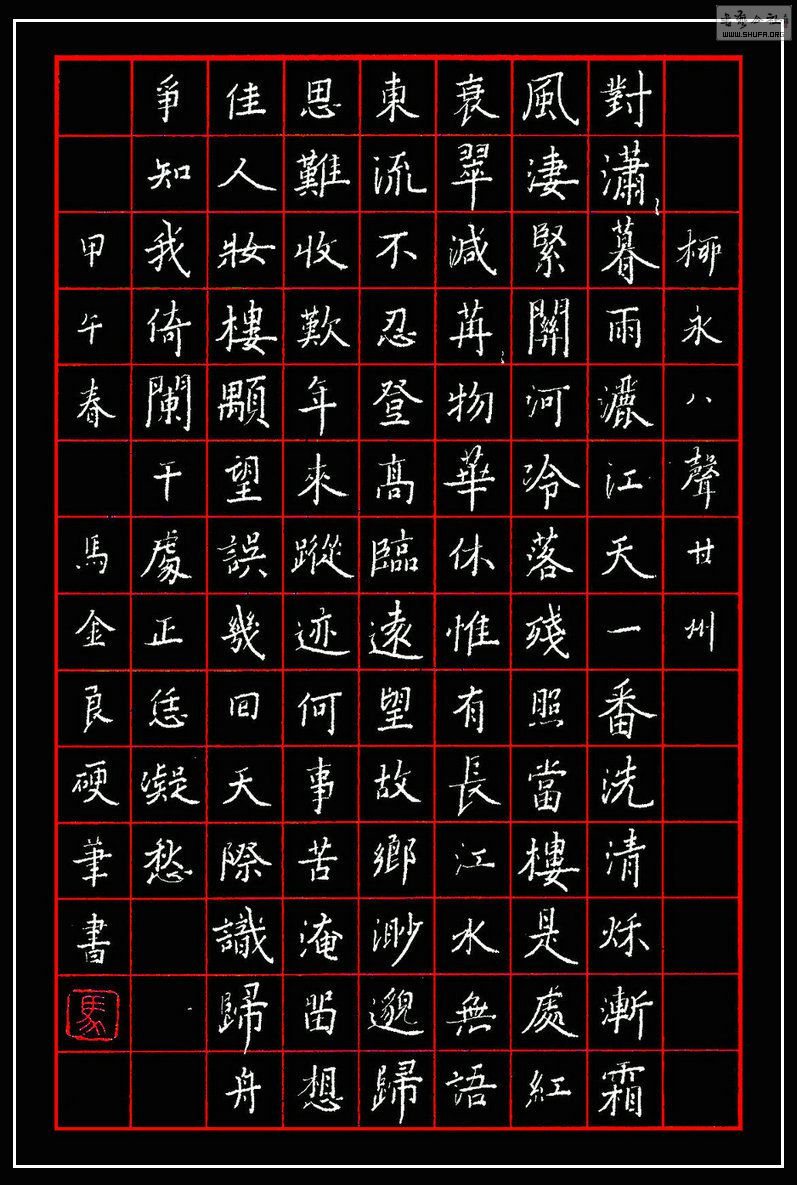 柳永八聲甘州
對瀟〻暮雨灑江天一番洗清秋漸霜
風淒緊關河冷落殘照當樓是處紅
衰翠減苒〻物華休惟有長江水無語
東流不忍登高臨遠望故鄉渺邈歸
思難收歎年來蹤迹何事苦淹留想
佳人妝樓顒望誤幾回天際識歸舟
爭知我倚闌干處正恁凝愁
甲午春 馬金良硬筆書
馬
WWW.SHUFA.ORG